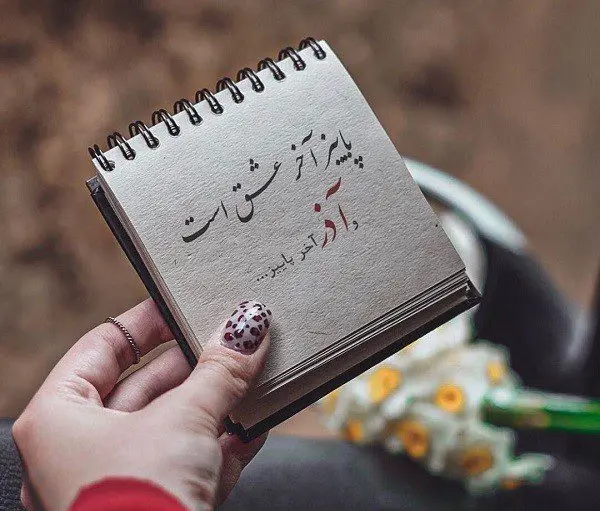 پاییز آخر عشق است
و آذر آخر پاییز...